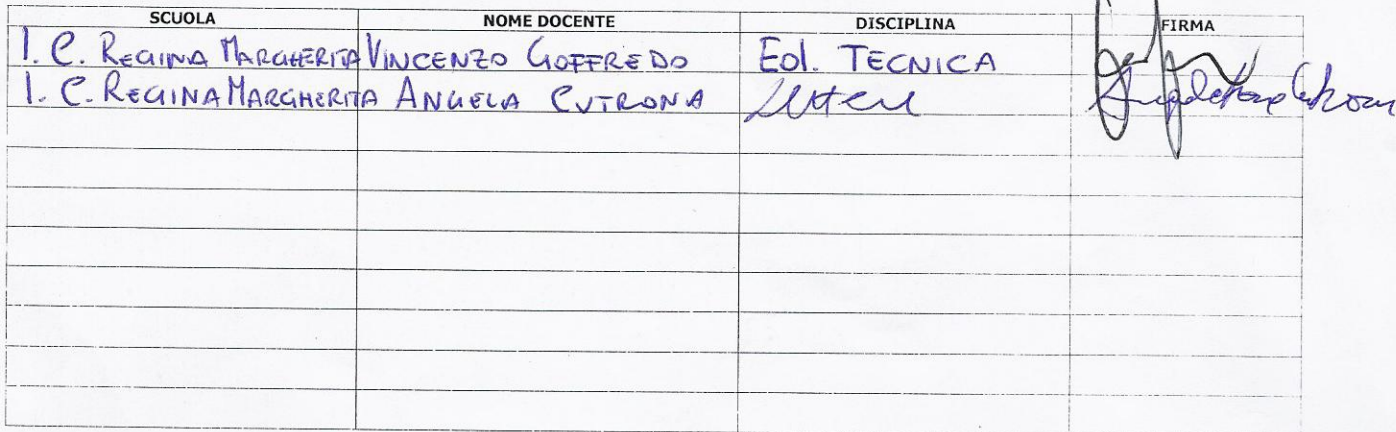 SCUOLA NOME DOCENTE DISCIPLINA FIRMA
I. C. REGINA MARGHERITA VINCENZO GOFFREDO Ed. TECNICA
I. C. REGINA MARGHERITA ANGELA CUTRONA Lettere